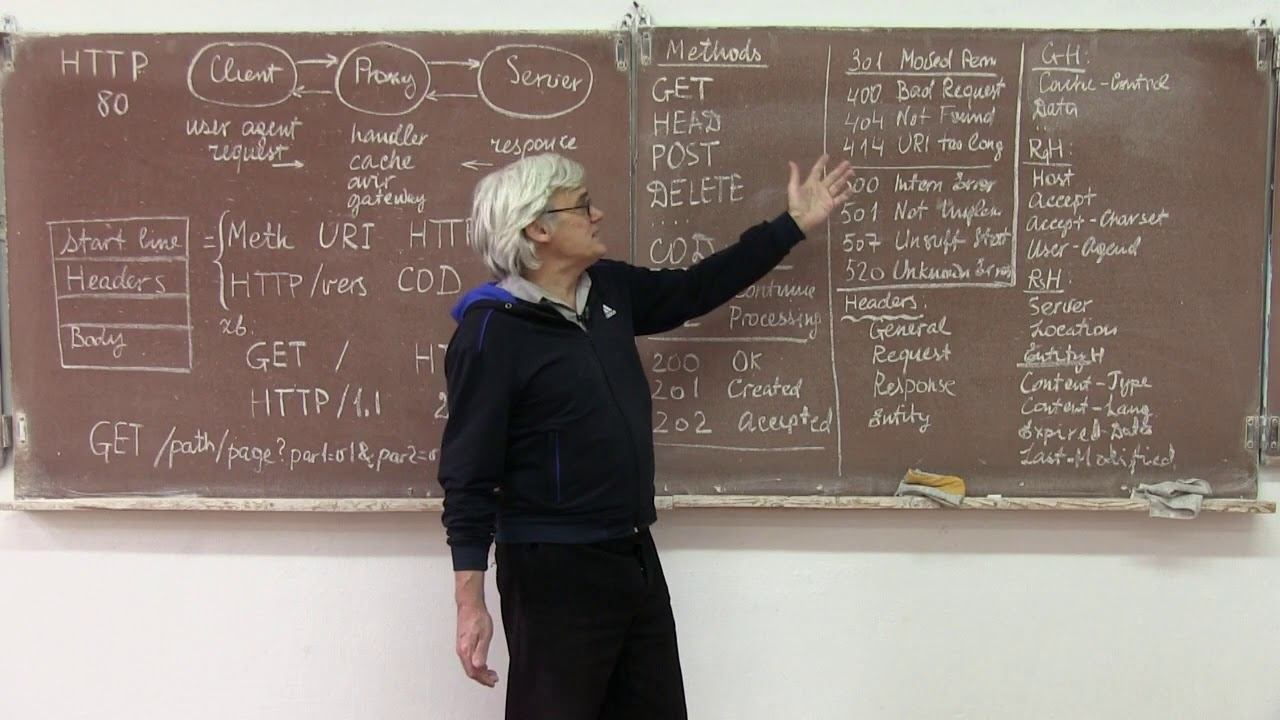 HTTP
80
Client
Proxy
Server
user agent
request
handler
cache
gateway
response
Start line
Headers
Body
= { Meth URI HTT
HTTP/vers COD
GET / HT
HTTP/1.1 2
GET /path/page?par1=v1&par2=v
Methods
GET
HEAD
POST
DELETE
...
COD
Continue
Processing
200 OK
201 Created
202 Accepted
301 Moved Perm
400 Bad Request
404 Not Found
414 URI too long
00 Intern Error
501 Not Implem
507 Unsuff Stor
520 Unknown Error
Headers:
General
Request
Response
Entity
GH:
Cache-Control
Data
...
RqH:
Host
Accept
Accept-Charset
User-Agend
RsH:
Server
Location
Entity H
Content-Type
Content-Lang
Expired-Data
Last-Modified
adidas